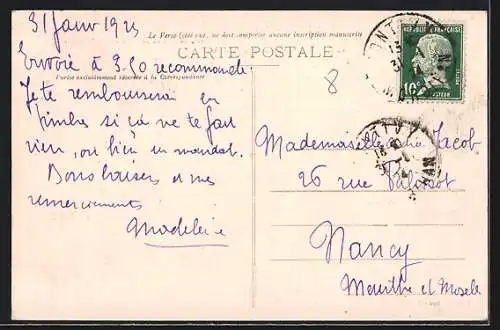 31 Janv 1925
Le Verso (côté vue) ne doit comporter aucune inscription manuscrite
CARTE POSTALE
Envoie à 3.90 recommandé
Partie exclusivement réservée à la Correspondance
Je te rembourserai en
timbre si ça ne te fait
rien, ou bien en mandat.
Bons baisers et mes
remerciements
Madeleine
8
REPUBLIQUE FRANÇAISE
10c
POSTES
PASTEUR
Mademoiselle Jacob
26 rue Palissot
Nancy
Meurthe et Moselle